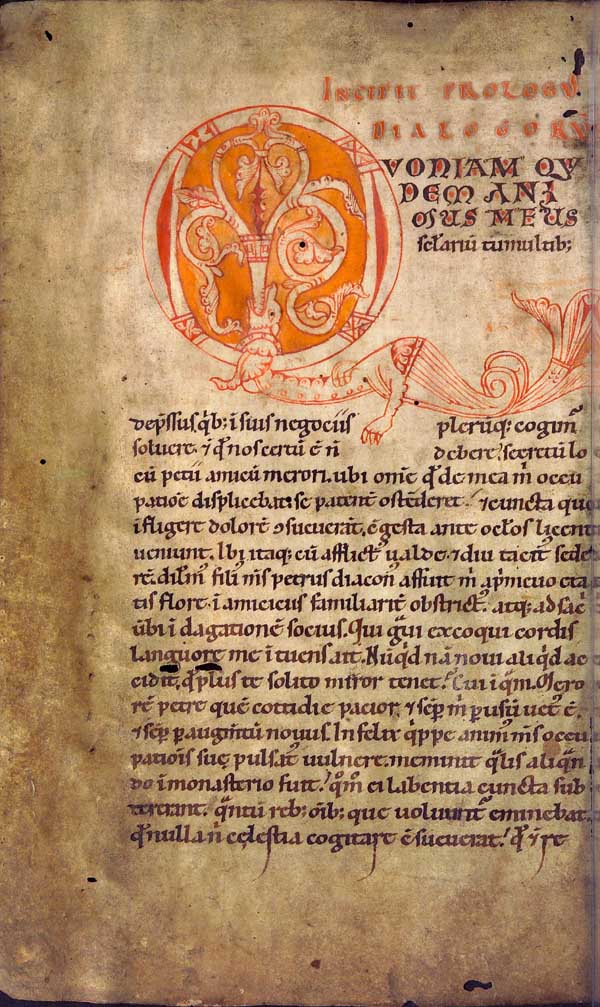 INCIPIT PROLOGU
DIALOGORU
QUONIAM QU
DEM ANI
OSUS MEUS
sęlariū tumultib;
dep̄ssus q̇b; ī suis negociis plerūq; cogim̄
soluere ⁊ qḋ nos certū ē n̄ debere secretū lo
cū petii amicū merori. ubi om̄e qḋ de mea m̄ occu
patiōe displicebat se patent ostēderet. ⁊ cuncta que
īfligere dolorē ꝯsueuerāt ꝯgesta ante oc̄los licent
uenirent. Ibi itaq; cū afflict᷒ ualde ⁊ diu tacit᷒ sede
rē. dilm̄ filī m̄s petrus diacon᷒ affuit m̄ a p̄meuo eta
tis flore ī amicicus familiarit̄ obstrict᷒. atq; ad sac̄
ūbi īdagationē socius. Qui ḡui excoqui cordis
languore me ītuens ait. Nūqd nā noui aliqd ac
cidit. qḋ plus te solito m̄ror tenet? Cui īqm̄. Mero
rē petre quē cottidie pacior ⁊ sēp m̄ p usū uet᷒ ē.
⁊ sēp p augm̄tū nouus. Infelix q̇ppe anim᷒ m̄s occu
pationis suę pulsat᷒ uulnere. meminit qlis aliqn̄
do ī monasterio fuit. qm̄ ei labentia cuncta sub
tererant. qn̄tū reb; oīb; que uoluunt᷒ eminebat.
qḋ nulla n̄ cęlestia cogitare ꝯsueuerat. qḋ ⁊ re